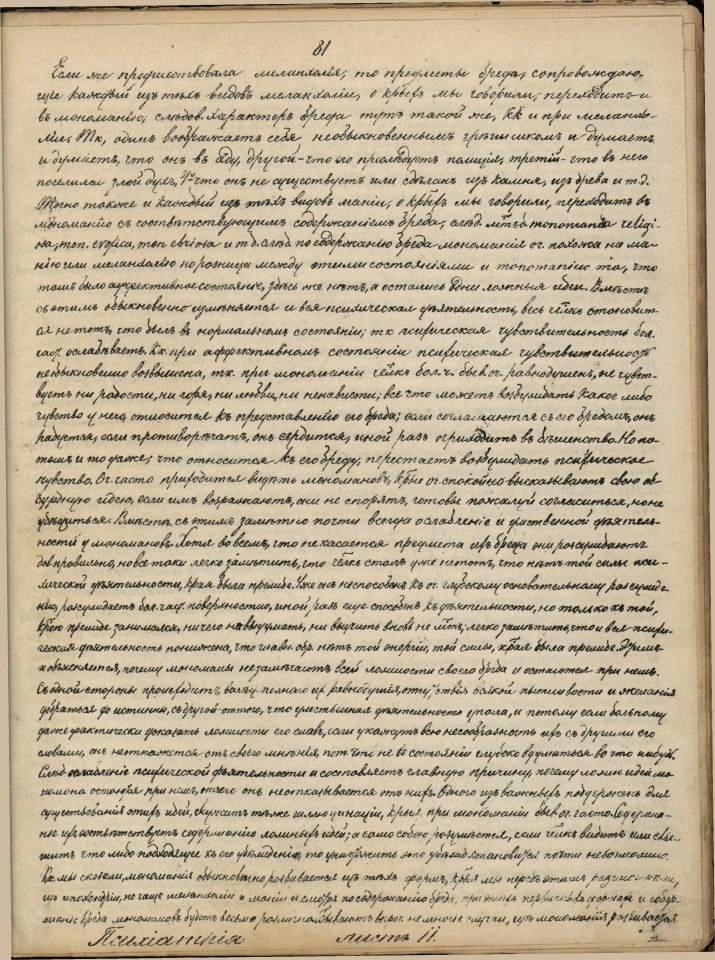 81
Если же предшествовала меланхолія, то предметы бреда, сопровождаю-
щіе каждый изъ тѣхъ видовъ меланхоліи, о крыхъ мы говорили, переходитъ и
въ мономанію; слѣдов. характеръ бреда тутъ такой же, кк и при меланхо-
ліи. Тк, одинъ воображаетъ себя необыкновеннымъ грѣшникомъ и думаетъ
и думаетъ, что онъ въ аду, другой-что его преслѣдуетъ полиція, третій-что въ него
поселился злой духъ, 4й что онъ не существуетъ или сдѣланъ изъ камня, изъ древа и т.д.
Точно также и каждый изъ тѣхъ видовъ маніи, о крыхъ мы говорили, переходитъ въ
мономанію съ соотвѣтствующимъ содержаніемъ бреда, слѣд. monomania religi-
osa, mon. erotica, mon. ebriosa и т.д. слѣд. по содержанію бреда мономанія оч. похожа на ма-
нію или меланхолію но разница между этими состояніями и мономаніею та, что
тамъ было аффективное состояніе, здѣсь же нѣтъ, а остались одни ложныя идеи. Вмѣстѣ
съ этимъ обыкновенно измѣняется и вся психическая дѣятельность, весь члкъ становит-
ся не тотъ, что былъ въ нормальномъ состояніи; тк психическая чувствительность бол.
час. ослабѣваетъ. Кк при аффективномъ состояніи психическая чувствительность
необыкновенно возвышена, тк. при мономаніи члкъ бол. ч. быв. оч. равнодушенъ, не чувст-
вуетъ ни радости, ни горя, ни любви, ни ненависти; все что можетъ возбуждать какое либо
чувство у него, относится къ представленію его бреда; если соглашаются съ его бредомъ, онъ
радуется, если противорѣчатъ, онъ сердится, иной разъ приходитъ въ бѣшенство. Но по-
томъ и то даже, что относится къ его бреду, перестаетъ возбуждать психическое
чувство. Оч. часто приходится видѣть мономановъ, крые оч. спокойно высказываютъ свою аб-
сурдную идею, если имъ возражаютъ, они не спорятъ, готовы пожалуй согласиться, но не
убѣдиться. Вмѣстѣ съ этимъ замѣтно почти всегда ослабленіе и умственной дѣятель-
ности у мономановъ. Хотя во всемъ, что не касается предмета ихъ бреда они разсуждаютъ
дов. правильно, но все таки легко замѣтить, что члкъ сталъ уже не тотъ, что нѣтъ той силы пси-
хической дѣятельности, края была прежде. Уже онъ неспособенъ къ оч. глубокому основательному разсужде-
нію, разсуждаетъ бол. час. поверхностно, иной разъ еще способенъ къ дѣятельности, но только къ той,
крою прежде занимался, ничего выдумать, ни выучить вновь не; легко замѣтить, что и вся психи-
ческая дѣятельность понижена, что главн. обр. нѣтъ той энергіи, той силы, края была прежде. Этимъ
и объясняется, почему мономаны не замѣчаютъ всей ложности своего бреда и остаются при немъ.
Съ одной стороны происходитъ полнаго ихъ равнодушія, отсутствія всякой пытливости и желанія
добраться до истины, съ другой-оттого, что умственная дѣятельность упала, и потому если больному
даже фактически доказать ложность его словъ, если укажутъ всю несообразность ихъ съ другими его
словами, онъ не откажется отъ своего мнѣнія, пот. что не въ состояніи глубоко вдуматься во что нибудь.
Слѣд. ослабленіе психической дѣятельности и составляетъ главную причину, почему ложныя идеи мо-
номана остаются при немъ, отчего онъ не отказывается отъ нихъ. Одного изъ важныхъ поддержекъ для
существованія этихъ идей, служатъ также галлюцинаціи, крыя при мономаніи быв. оч. часто. Содержа-
ніе ихъ соотвѣтствуетъ содержанію ложныхъ идей; а само собою разумѣется, если члкъ видитъ или слы-
шитъ что либо подходящее къ его убѣжденію, то уничтожить это убѣжд. становится почти невозможно.
Кк мы сказали, мономанія обыкновенно развивается изъ тѣхъ формъ, крыя мы передъ этимъ разсмотрѣли,
изъ ипохондріи, но чаще меланхоліи и маніи и смотря по содержанію бреда, при этихъ первичныхъ формахъ и содер-
жаніе бреда мономановъ будетъ весьма различно. Бываютъ немногіе случаи, гдѣ мономанія развивается
Психіатрія листъ 11.